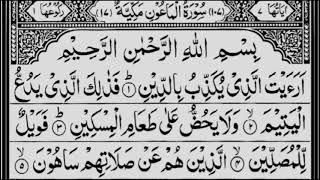 اٰیَاتُهَا ٧ (١٠٧) سُوْرَةُ الْمَاعُوْنِ مَكِّیَّةٌ (١٧) رُكُوْعُهَا ١
بِسْمِ اللّٰهِ الرَّحْمٰنِ الرَّحِیْمِ
اَرَءَیْتَ الَّذِیْ یُكَذِّبُ بِالدِّیْنِ ۝١ فَذٰلِكَ الَّذِیْ یَدُعُّ
الْیَتِیْمَ ۝٢ وَلَا یَحُضُّ عَلٰی طَعَامِ الْمِسْكِیْنِ ۝٣ فَوَیْلٌ
لِّلْمُصَلِّیْنَ ۝٤ الَّذِیْنَ هُمْ عَنْ صَلَاتِهِمْ سَاهُوْنَ ۝٥